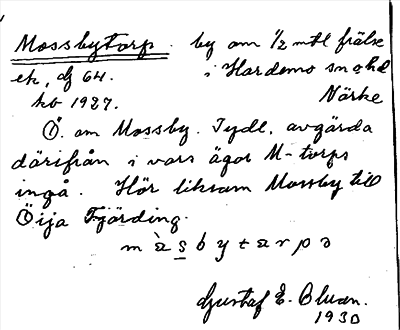 Mossbytorp. by om 1/2 mtl frälse
ek, bf 64. i Hardemo sn o hd
kb 1927. Närke
Ö. om Mossby. Tydl. avgärda
därifrån i vars ägor M-torps
ingå. Hör liksom Mossby till
Öija Fjärding.
m à s b y t a r p ə
Gustaf E. Bluan.
1930